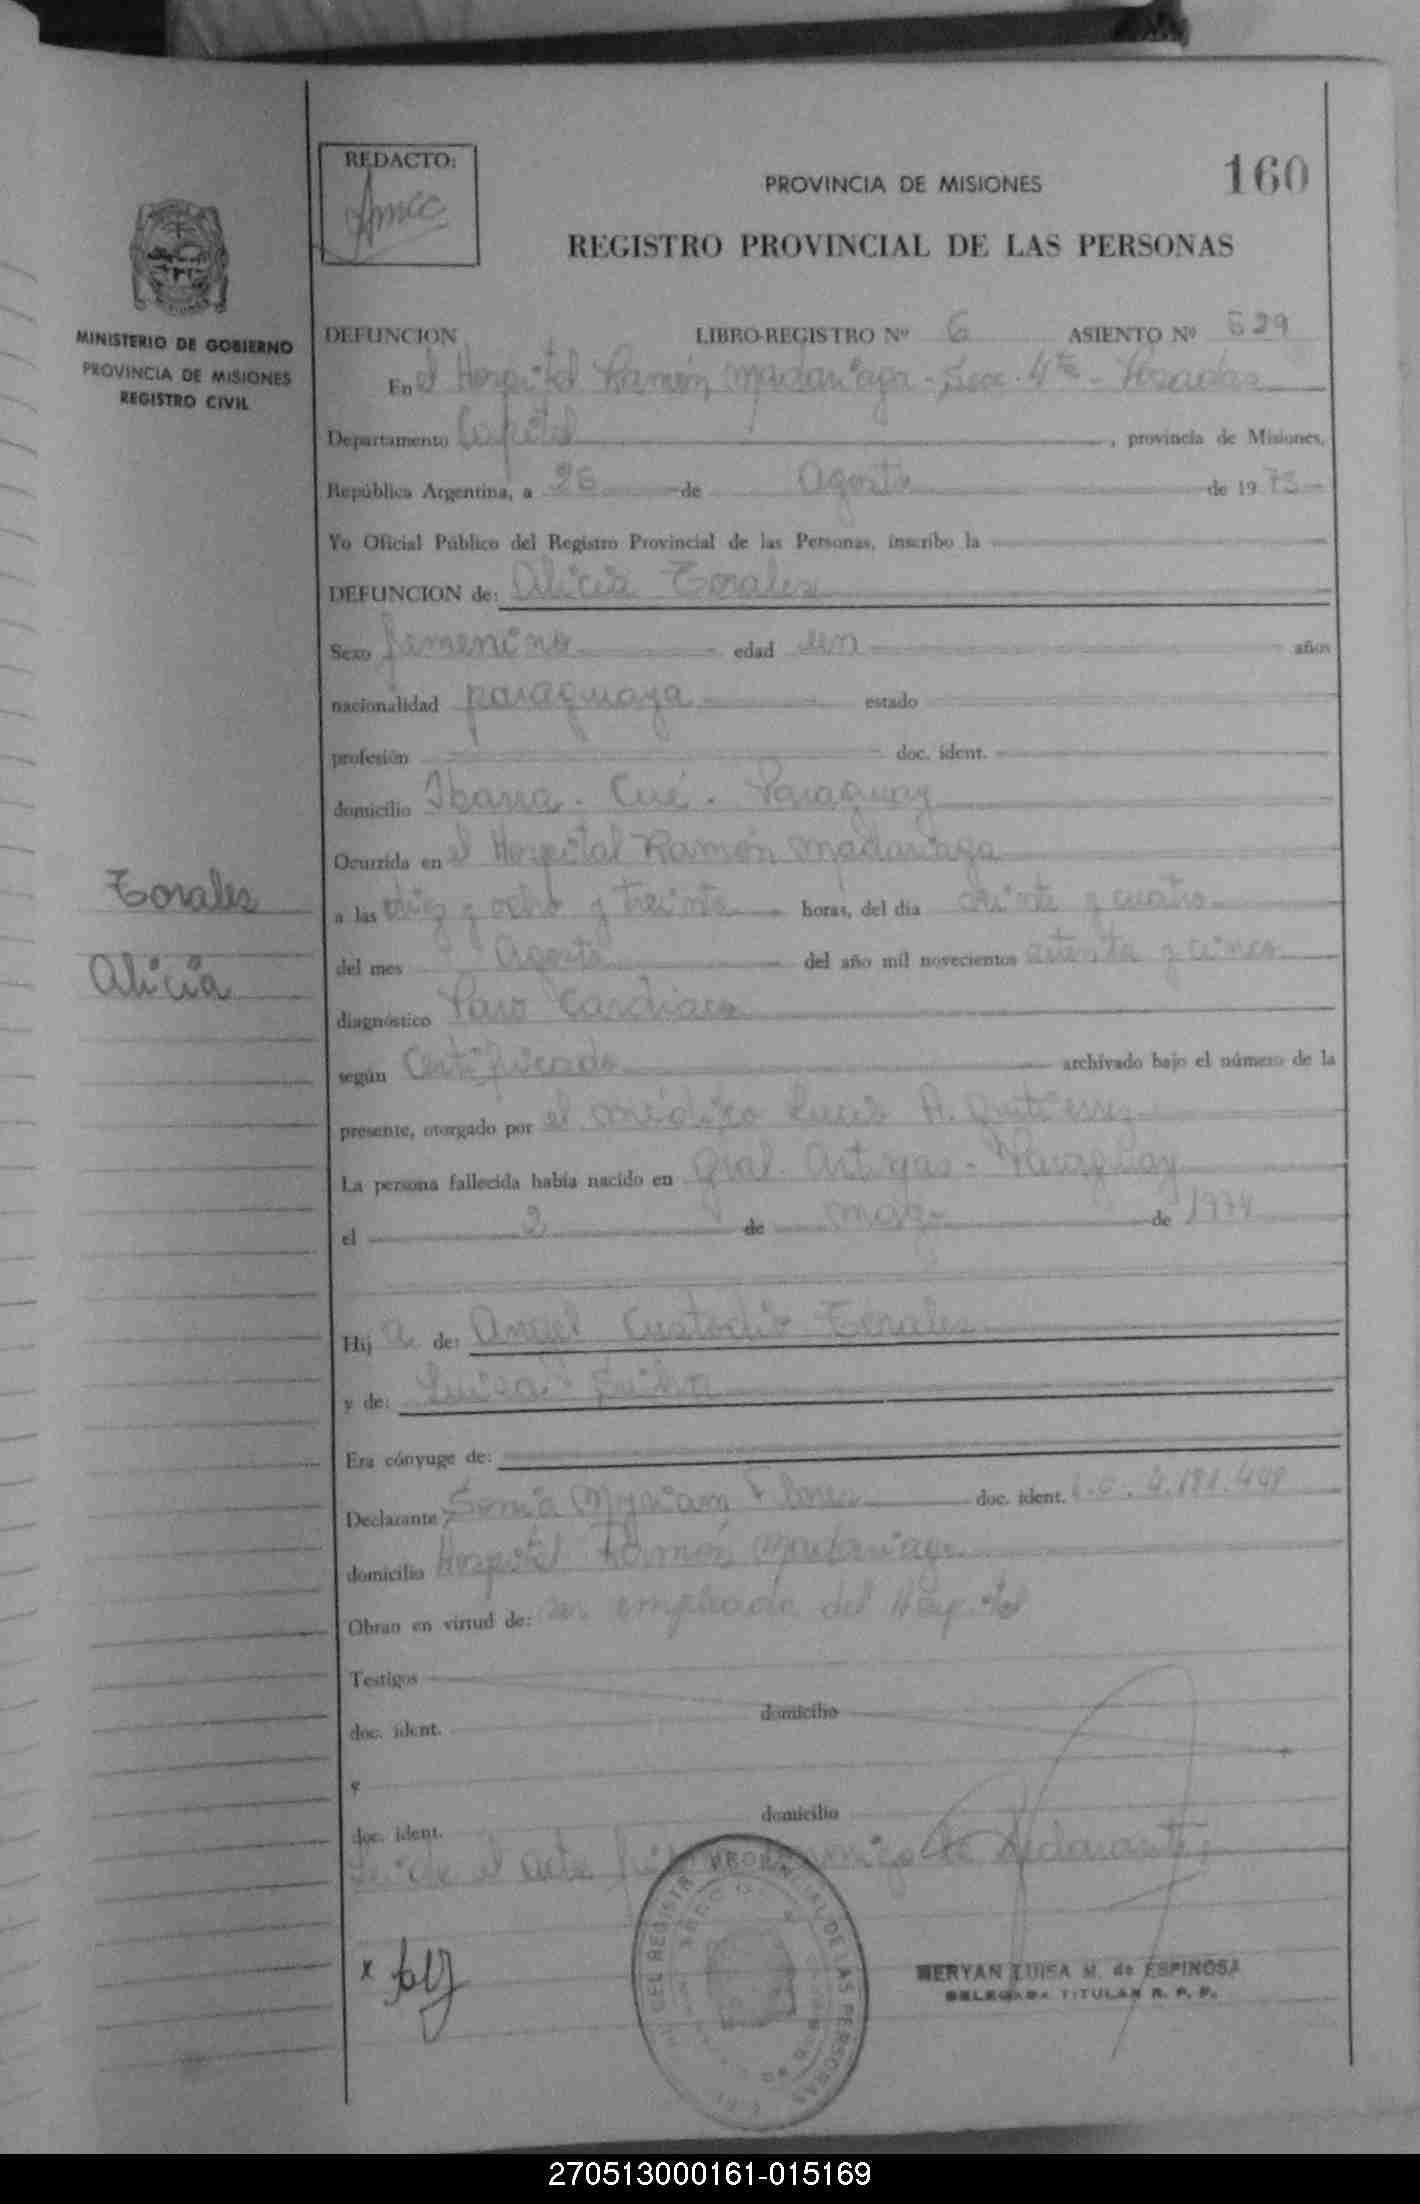 REDACTO:
PROVINCIA DE MISIONES
160
REGISTRO PROVINCIAL DE LAS PERSONAS
MINISTERIO DE GOBIERNO
PROVINCIA DE MISIONES
REGISTRO CIVIL
DEFUNCION LIBRO-REGISTRO Nº 6 ASIENTO Nº 529
En el Hospital Ramón Madariaga - Secc. 4ta - Posadas
Departamento Capital, provincia de Misiones,
República Argentina, a 26 de Agosto de 1975
Yo Oficial Público del Registro Provincial de las Personas, inscribo la
DEFUNCION de: Alicia Torales
Sexo femenino edad un años
nacionalidad paraguaya estado
profesión doc. ident.
domicilio Ibarra - Cué - Paraguay
Ocurrida en el Hospital Ramón Madariaga
Torales
a las diez y ocho y treinta horas, del día veinte y cuatro
Alicia
del mes Agosto del año mil novecientos setenta y cinco
diagnóstico Paro Cardiaco
según Certificado archivado bajo el número de la
presente, otorgado por el médico Lucas A. Gutierrez
La persona fallecida había nacido en Gral. Artigas - Paraguay
el 2 de de 1974
Hij a de: Angel Custodio Torales
y de: Luisa
Era cónyuge de:
Declarante Sonia Myriam Flores doc. ident. L.C. 4.181.449
domicilio Hospital Ramón Madariaga
Obran en virtud de: ser empleada del Hospital
Testigos
doc. ident. domicilio
y
doc. ident. domicilio
Leída el acta declarante
REGISTRO PROVINCIAL DE LAS PERSONAS
MERYAN LUISA M. de ESPINOSA
DELEGADA TITULAR R. P. P.
270513000161-015169